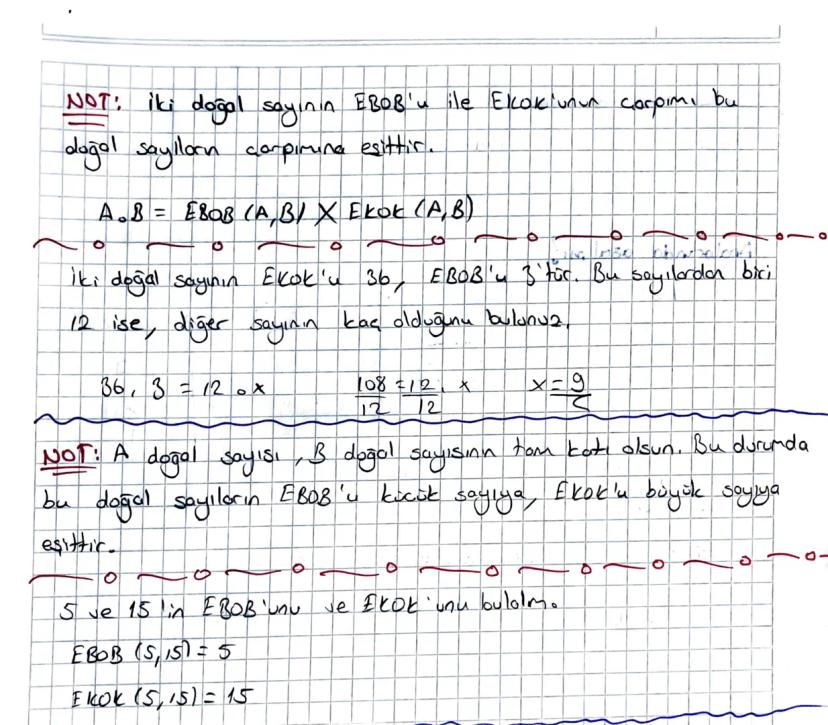 NOT: İki doğal sayının EBOB'u ile EKOK'unun çarpımı bu
doğal sayıların çarpımına eşittir.
A.B = EBOB (A,B) X EKOK (A,B)
İki doğal sayının EKOK'u 36, EBOB'u 3'tür. Bu sayılardan biri
12 ise, diğer sayının kaç olduğunu bulunuz.
36.3 = 12.x 108/12 = 12/12 . x x = 9
NOT: A doğal sayısı, B doğal sayısının tam katı olsun. Bu durumda
bu doğal sayıların EBOB'u küçük sayıya, EKOK'u büyük sayıya
eşittir.
5 ve 15'in EBOB'unu ve EKOK'unu bulalım.
EBOB (5,15) = 5
EKOK (5,15) = 15